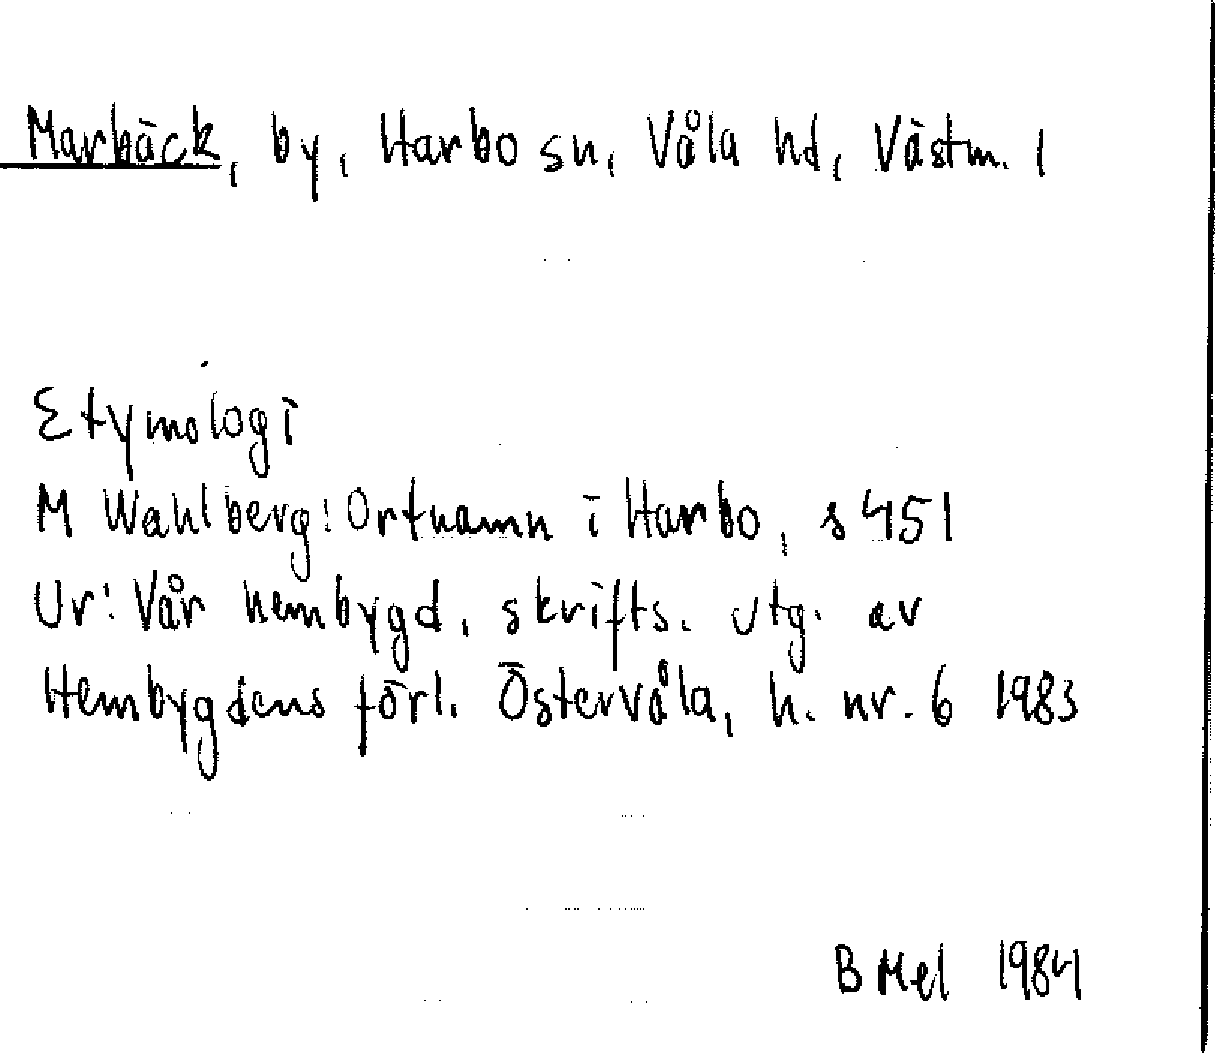 Marbäck, by, Harbo sn, Våla hd, Västm. l
Etymologi
M Wahlberg: Ortnamn i Harbo, s 451
Ur: Vår hembygd, skrifts. utg. av
Hembygdens förl. Östervåla, h. nr. 6 1983
B Mel 1984